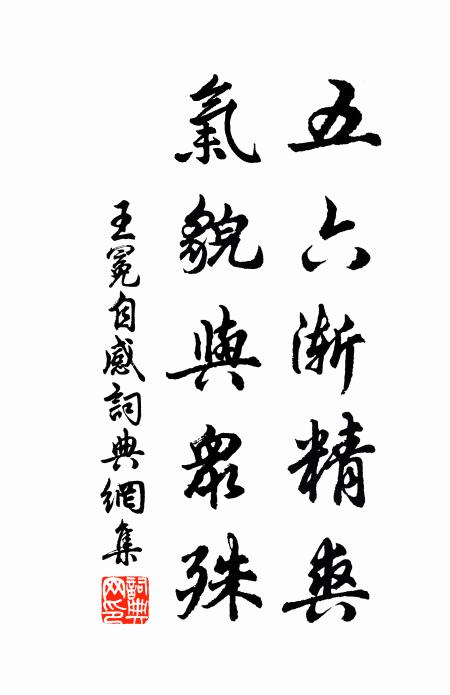 五六漸精爽
氣貌與衆殊
王冕自感詞典網集
詞典網印